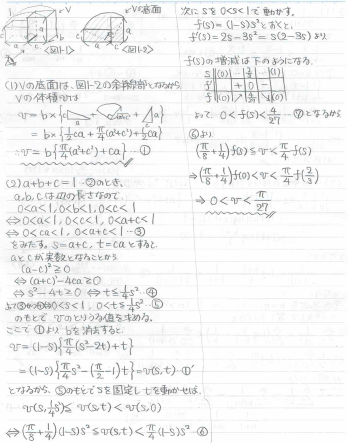 V
Vの底面
c
a
b
図1-1
c
a
c
a
図1-2
(1) Vの底面は、図1-2の斜線部となるから
Vの体積vは
v = b×{c a + + a c}
= b×{1/2 ca + π/4 (a²+c²) + 1/2 ca}
∴ v = b{π/4 (a²+c²) + ca} …①
(2) a+b+c=1 …②のとき、
a,b,cは辺の長さなので
0<a<1, 0<b<1, 0<c<1
⇔ 0<a<1, 0<c<1, 0<a+c<1
⇔ 0<ca<1, 0<a+c<1 …③
をみたす。s=a+c, t=caとすると
aとcが実数となることから
(a-c)²≧0
⇔ (a+c)²-4ca≧0
⇔ s²-4t≧0 ⇔ t≦1/4 s² …④
よって③かつ④⇔ 0<s<1, 0<t≦1/4 s² …⑤
のもとで vのとりうる値を求める。
ここで①より bを消去すると
v = (1-s){π/4 (s²-2t)+t}
= (1-s){π/4 s² - (π/2 -1)t} = v(s,t) …①'
となるから、⑤のもとでsを固定しtを動かせば、
v(s, 1/4 s²) ≦ v(s,t) < v(s,0)
⇔ (π/8 + 1/4)(1-s)s² ≦ v(s,t) < π/4 (1-s)s² …⑥
次にsを0<s<1で動かす。
f(s) = (1-s)s²とおくと、
f'(s) = 2s-3s² = s(2-3s)より
f(s)の増減は下のようになる。
s (0) … 2/3 … (1)
f' + 0 -
f (0) ↗ 4/27 ↘ (0)
よって、0<f(s)≦4/27 …⑦となるから
⑥より
(π/8 + 1/4) f(s) ≦ v < π/4 f(s)
⇒ (π/8 + 1/4) f(0) < v < π/4 f(2/3)
⇒ 0 < v < π/27